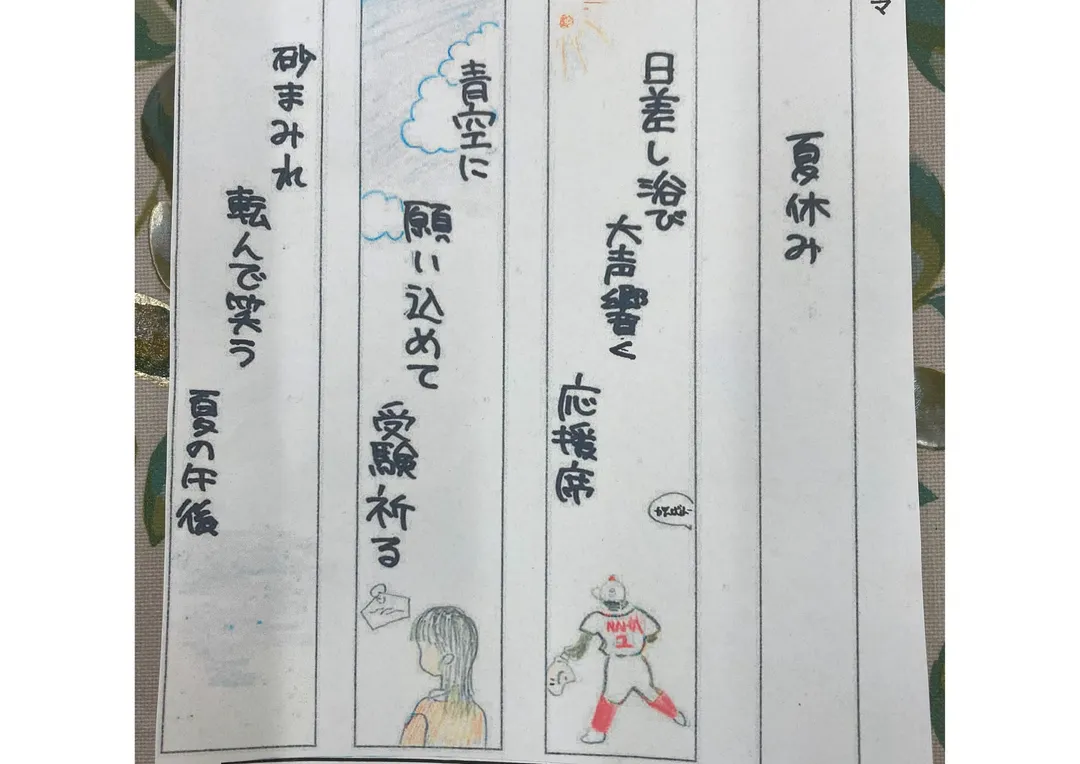 マ
夏休み
日差し浴び
大声響く
応援席
がんばれー
NAHA
1
青空に
願い込めて
受験祈る
砂まみれ
転んで笑う
夏の午後